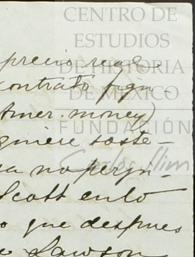 CENTRO DE
ESTUDIOS
DE HISTORIA
DE MÉXICO
FUNDACIÓN
Carlos Slim
precio rega-
contrato sign-
Amer. money)
quiere soste
na no perju-
Scott en lo
o que despues
Lawson